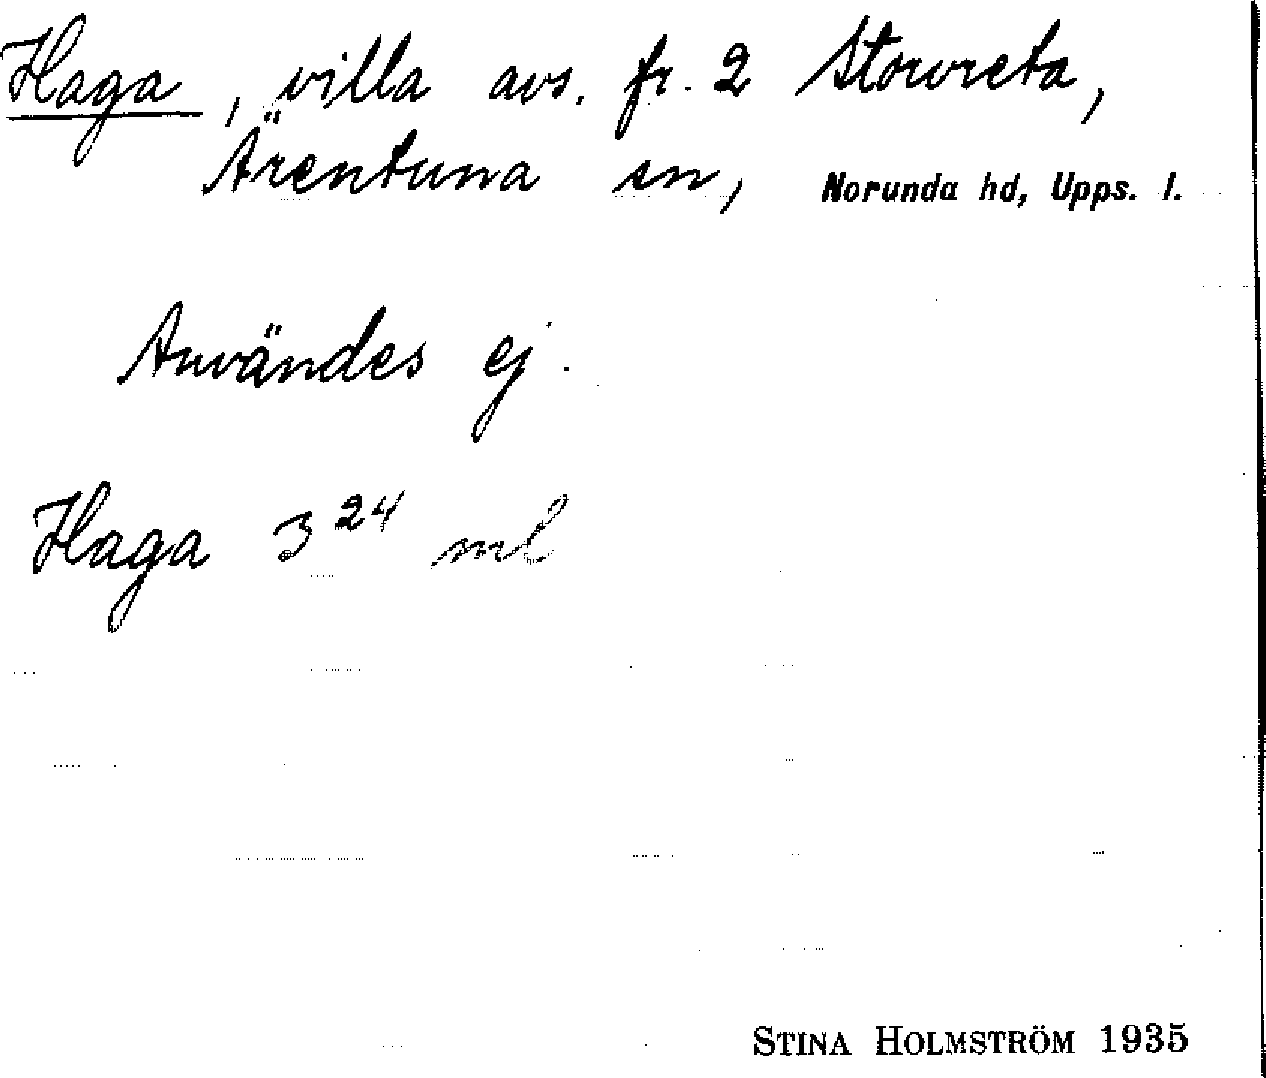 Haga, villa avs. fr. 2 Storvreta,
Ärentuna sn, Norunda hd, Upps. l.
Användes ej.
Haga 3²⁴ ml
STINA HOLMSTRÖM 1935